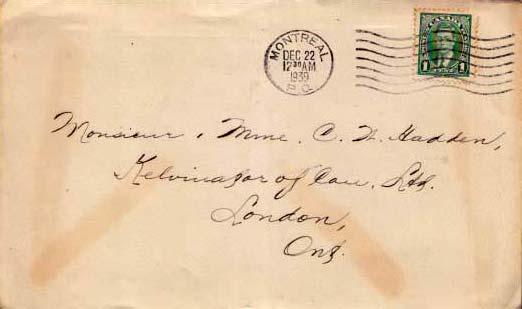 MONTREAL
DEC 22
12 30 AM
1939
P.Q.
CANADA
1 1
Monsieur, Mme. C. W. Hadden,
Kelvinator of Can. Ltd.
London,
Ont.